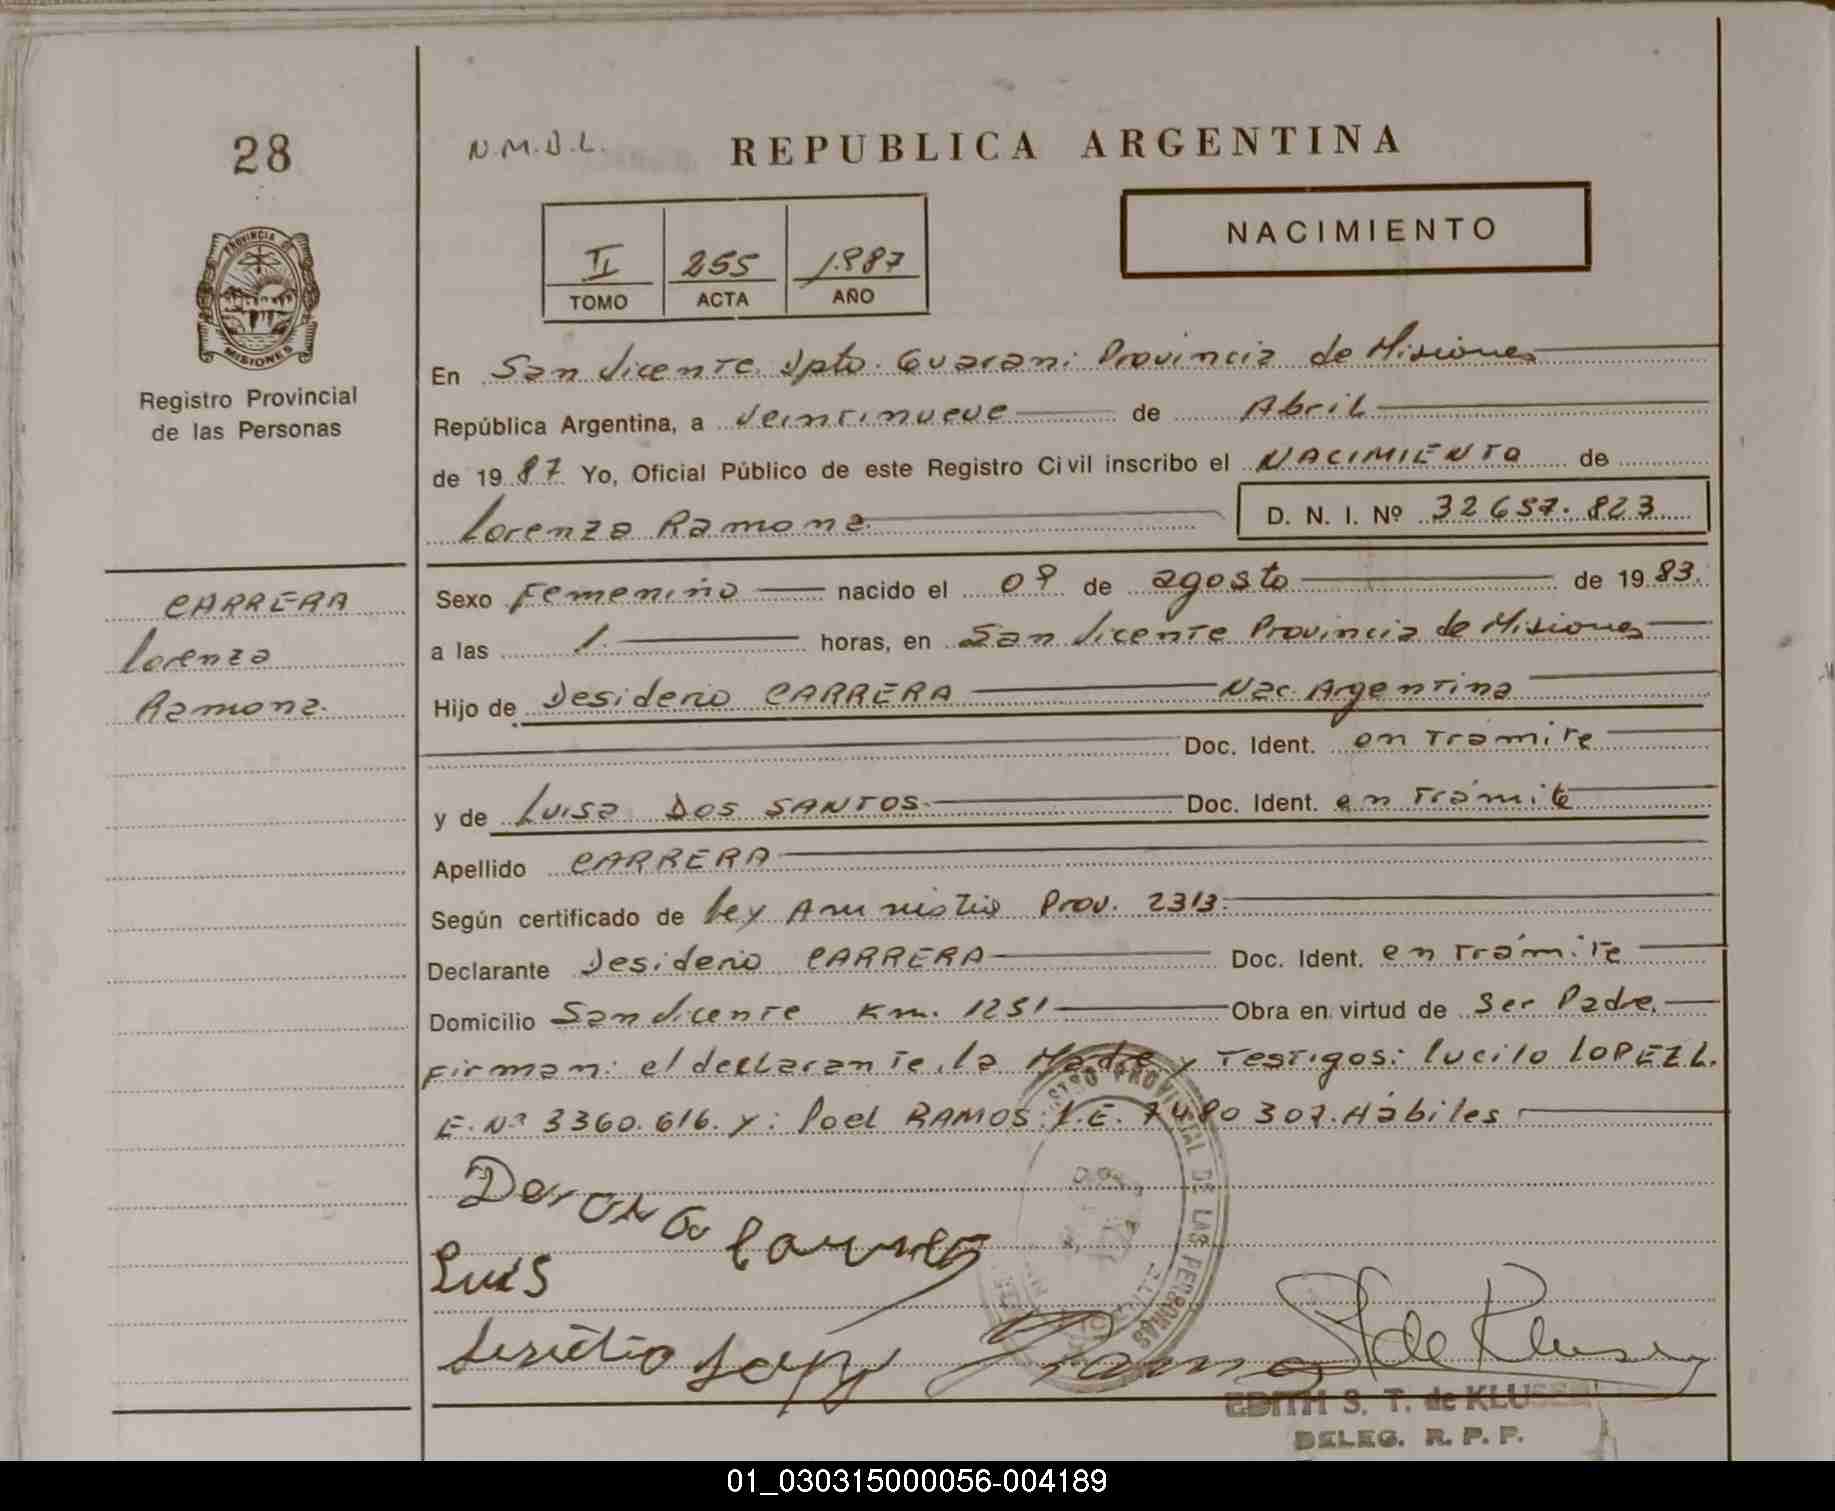 28
N.M.D.L.
REPUBLICA ARGENTINA
NACIMIENTO
II 255 1.987
TOMO ACTA AÑO
PROVINCIA DE
MISIONES
Registro Provincial
de las Personas
En San Vicente Dpto. Guarani Provincia de Misiones
República Argentina, a Veintinueve de Abril
de 1987 Yo, Oficial Público de este Registro Civil inscribo el NACIMIENTO de
Lorenza Ramona D. N. I. Nº 32657.823
CARRERA
Lorenza
Ramona.
Sexo Femenino nacido el 09 de agosto de 1983.
a las 1. horas, en San Vicente Provincia de Misiones
Hijo de Desiderio CARRERA Nac. Argentina
Doc. Ident. en Tramite
y de Luisa DOS SANTOS Doc. Ident. en Trámite
Apellido CARRERA
Según certificado de Ley Amnistia Prov. 2313.
Declarante Desiderio CARRERA Doc. Ident. en Trámite
Domicilio San Vicente Km. 1251 Obra en virtud de Ser Padre.
Firman: el declarante, la Madre y Testigos: Lucilo LOPEZ L.
E. Nº 3360.616. y: Poel RAMOS L.E. 7480307. Hábiles
REGISTRO PROVINCIAL DE LAS PERSONAS
Luis
EDITH S. T. de KLUSE
DELEG. R. P. P.
01_030315000056-004189